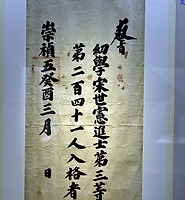 敎旨
幼學宋世憲進士第三等
第二百四十一人入格者
崇禎五癸酉三月 日